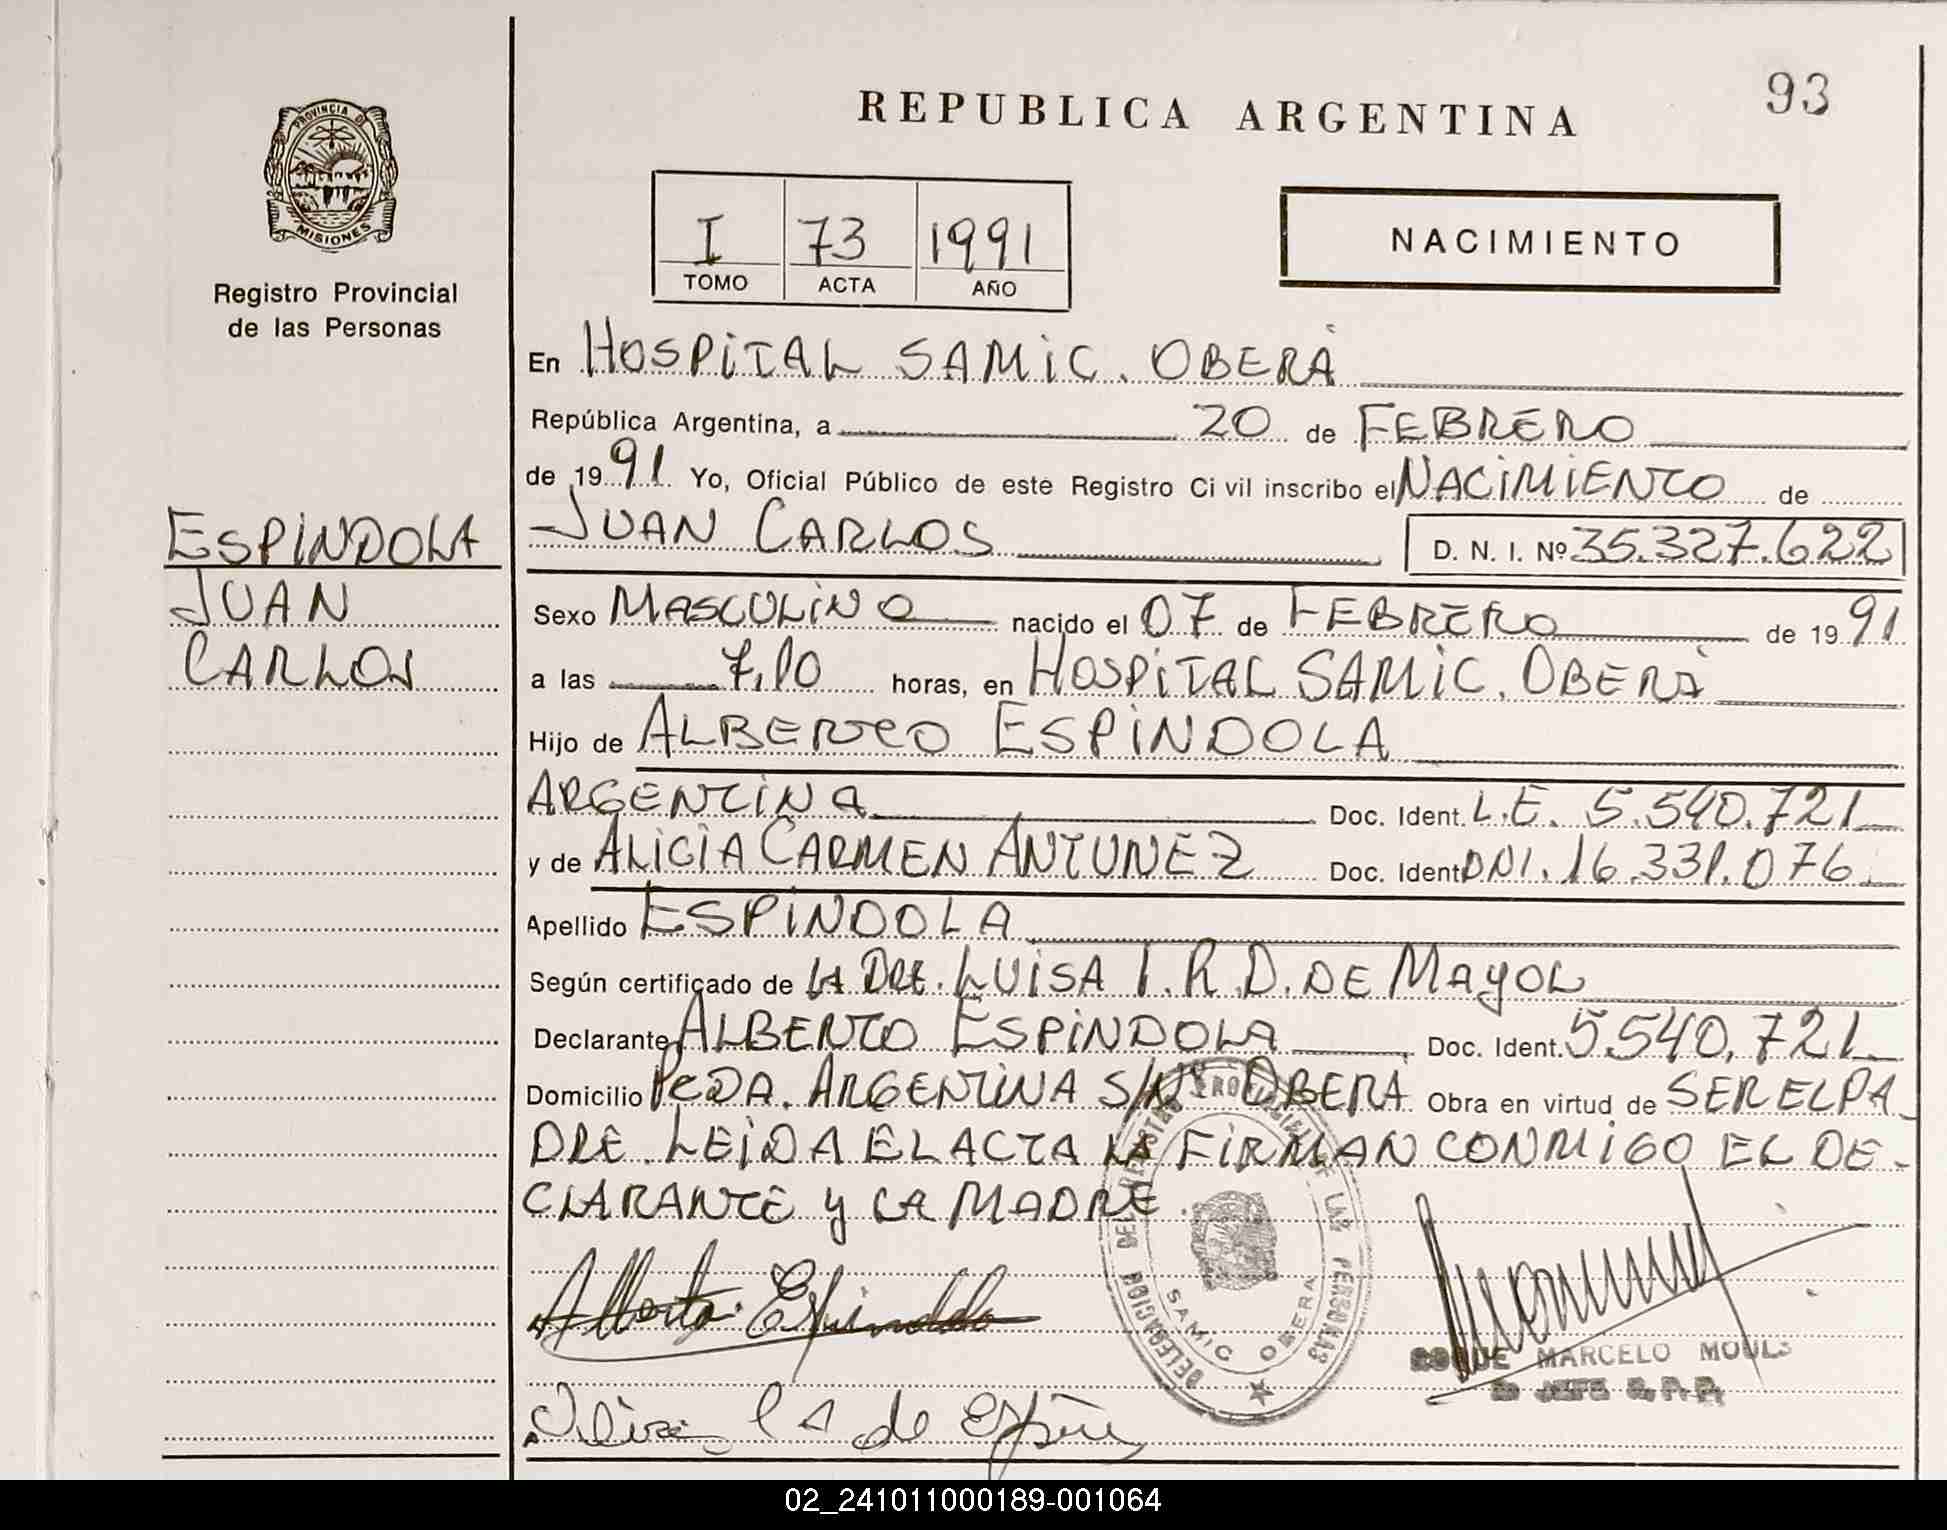 93
REPUBLICA ARGENTINA
PROVINCIA DE
MISIONES
Registro Provincial
de las Personas
I 73 1991
TOMO ACTA AÑO
NACIMIENTO
En HOSPITAL SAMIC. OBERÁ
República Argentina, a 20 de FEBRERO
de 1991 Yo, Oficial Público de este Registro Civil inscribo el NACIMIENTO de
JUAN CARLOS D. N. I. Nº 35.327.622
ESPINDOLA
JUAN
CARLOS
Sexo MASCULINO nacido el 07 de FEBRERO de 1991
a las 7,10 horas, en HOSPITAL SAMIC. OBERÁ
Hijo de ALBERTO ESPINDOLA
ARGENTINA Doc. Ident. L.E. 5.540.721
y de ALICIA CARMEN ANTUNEZ Doc. Ident DNI. 16.331.076
Apellido ESPINDOLA
Según certificado de LA DRA. LUISA I. R. D. DE MAYOL
Declarante ALBERTO ESPINDOLA Doc. Ident. 5.540.721
Domicilio PCDA. ARGENTINA S/Nº OBERÁ Obra en virtud de SER EL PA
DRE. LEIDA EL ACTA LA FIRMAN CONMIGO EL DE-
CLARANTE y LA MADRE.
Alberto Espindola
DELEGACION DEL REGISTRO PROVINCIAL DE LAS PERSONAS
SAMIC OBERA
MARCELO MOULS
JEFE R.P.P.
de
02_241011000189-001064